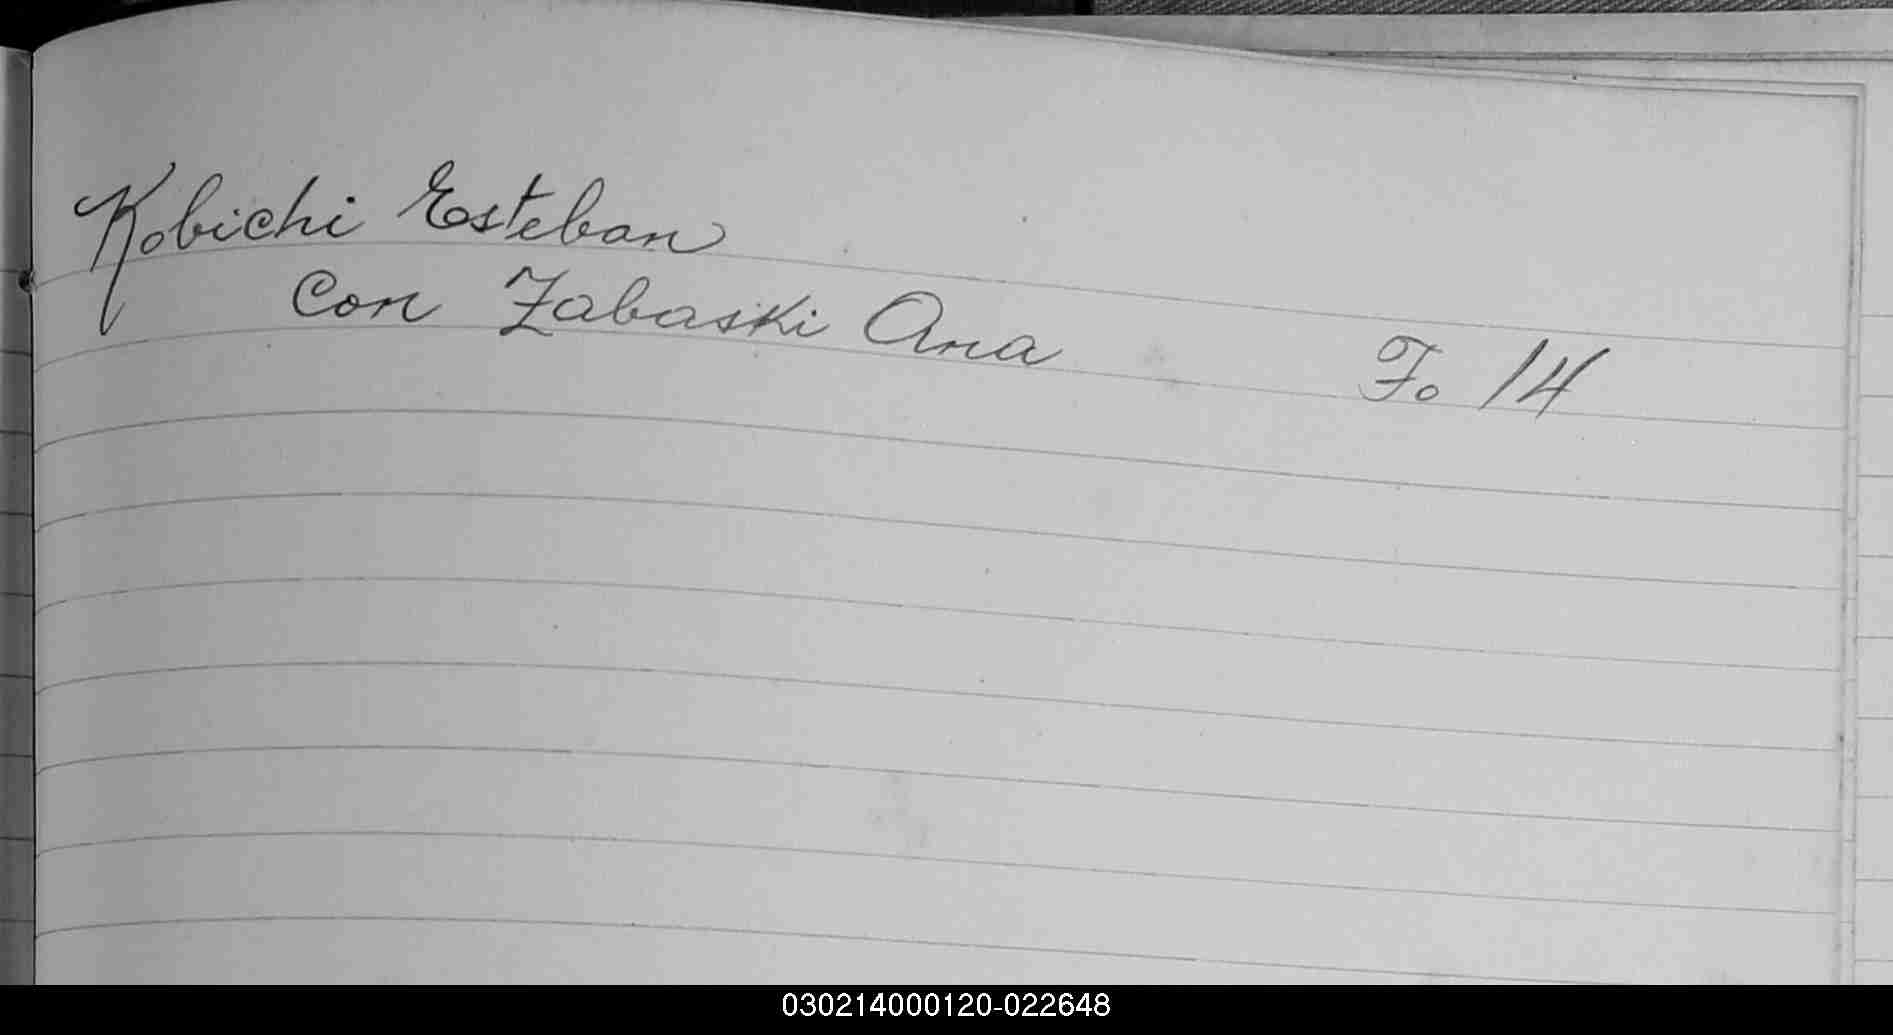 Kobichi Esteban
Con Zabaski Ana Fo 14
030214000120-022648